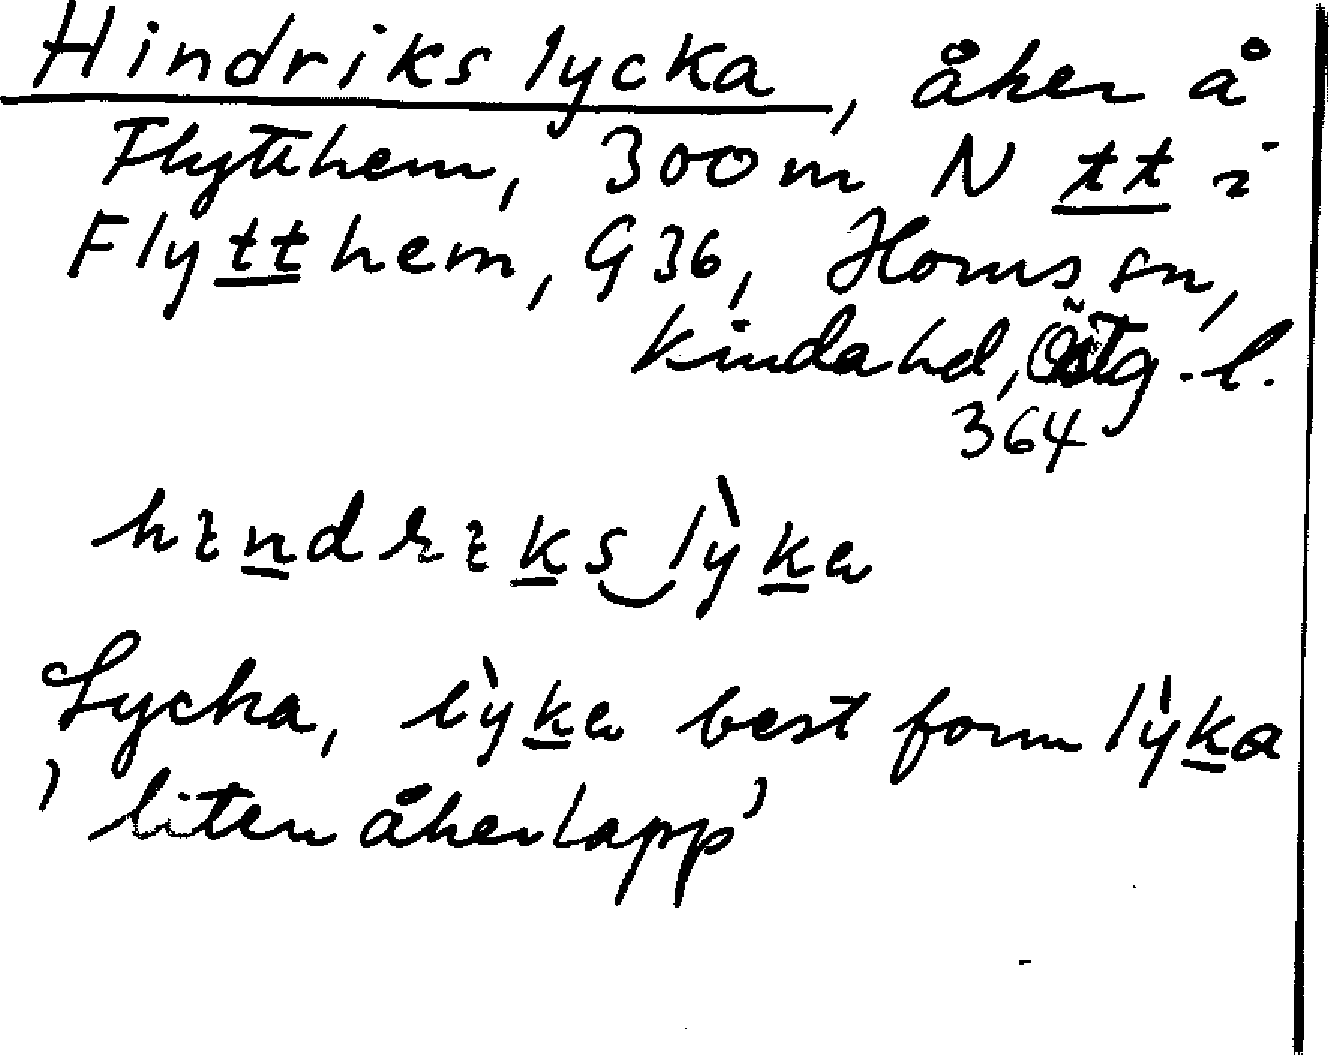 Hindrikslycka, åker å
Flytthem, 300 m N tt i
Flytthem, G36, Horns sn,
Kinda hd, Östg. l.
364
hɪndrɪks lỳka
Lycka, lỳka best form lỳka
'liten åkerlapp'